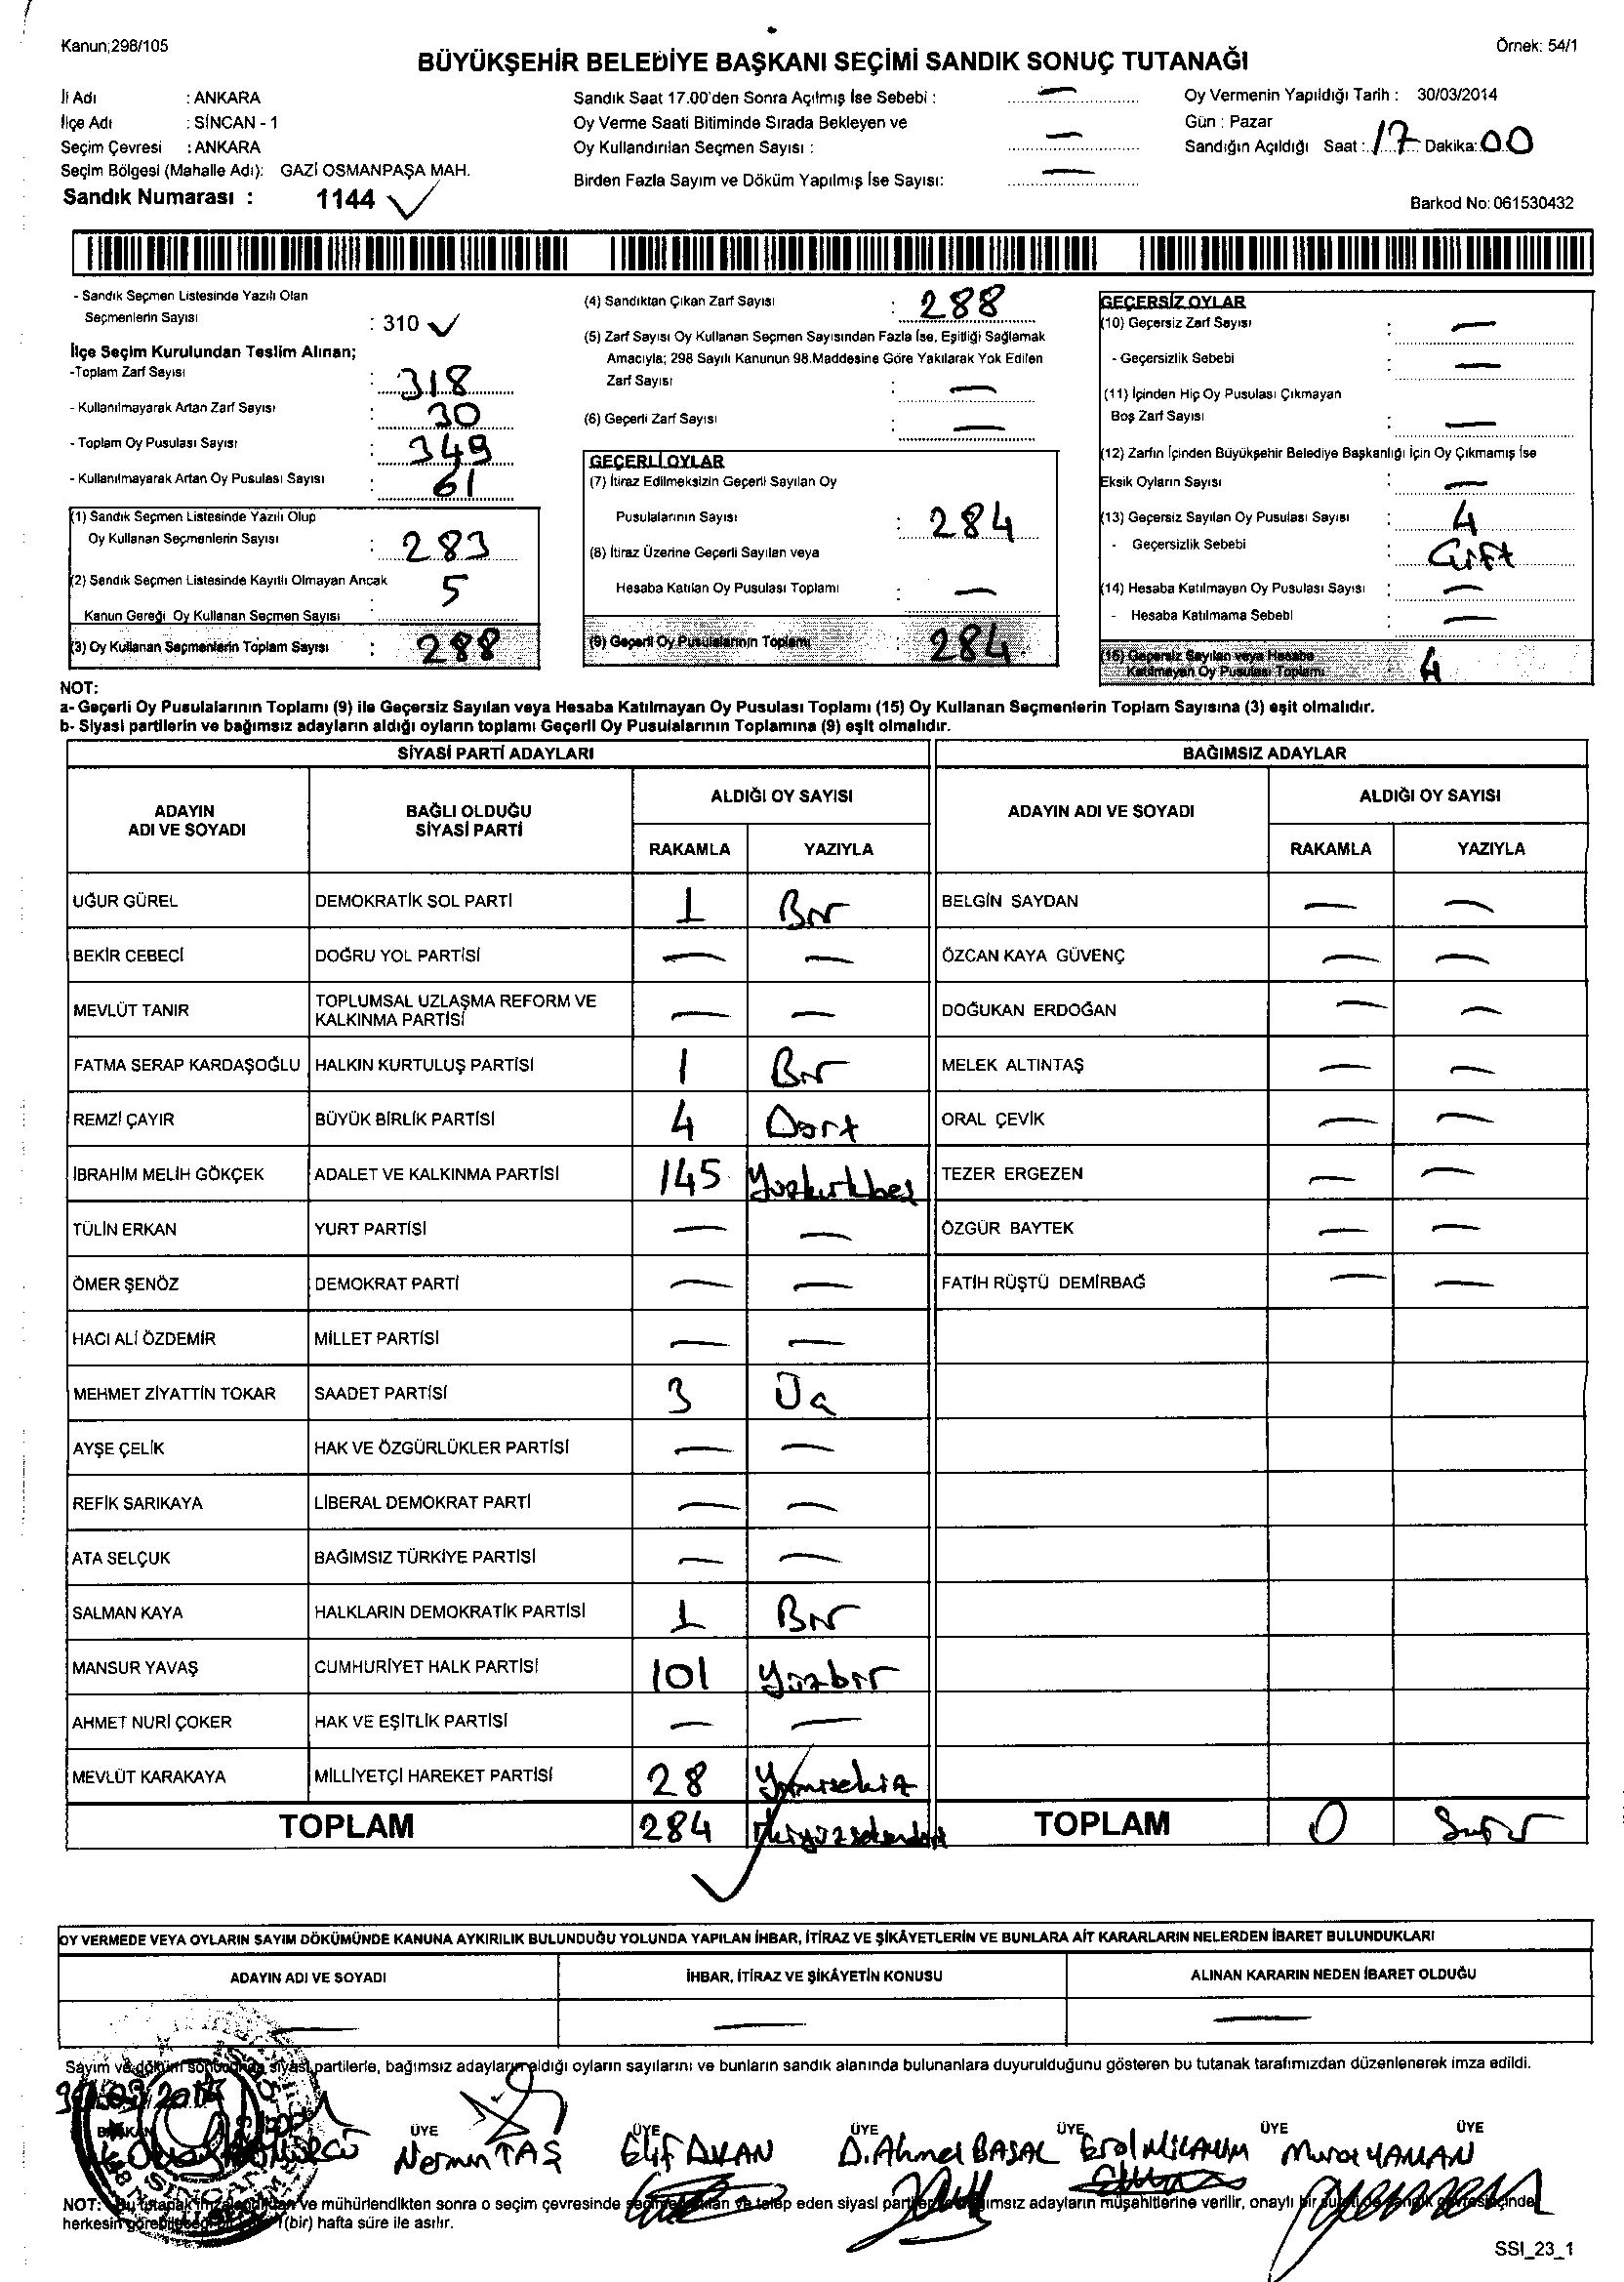 Kanun;298/105
Örnek: 54/1
BÜYÜKŞEHİR BELEDİYE BAŞKANI SEÇİMİ SANDIK SONUÇ TUTANAĞI
İl Adı : ANKARA
İlçe Adı : SİNCAN - 1
Seçim Çevresi : ANKARA
Seçim Bölgesi (Mahalle Adı): GAZİ OSMANPAŞA MAH.
Sandık Numarası : 1144
Sandık Saat 17.00'den Sonra Açılmış İse Sebebi : —
Oy Verme Saati Bitiminde Sırada Bekleyen ve
Oy Kullandırılan Seçmen Sayısı : —
Birden Fazla Sayım ve Döküm Yapılmış İse Sayısı: —
Oy Vermenin Yapıldığı Tarih : 30/03/2014
Gün : Pazar
Sandığın Açıldığı Saat : 17 Dakika: 00
Barkod No: 061530432
- Sandık Seçmen Listesinde Yazılı Olan
Seçmenlerin Sayısı : 310
İlçe Seçim Kurulundan Teslim Alınan;
-Toplam Zarf Sayısı : 318
- Kullanılmayarak Artan Zarf Sayısı : 30
- Toplam Oy Pusulası Sayısı : 349
- Kullanılmayarak Artan Oy Pusulası Sayısı : 61
(1) Sandık Seçmen Listesinde Yazılı Olup
Oy Kullanan Seçmenlerin Sayısı : 283
(2) Sandık Seçmen Listesinde Kayıtlı Olmayan Ancak
Kanun Gereği Oy Kullanan Seçmen Sayısı : 5
(3) Oy Kullanan Seçmenlerin Toplam Sayısı : 288
(4) Sandıktan Çıkan Zarf Sayısı : 288
(5) Zarf Sayısı Oy Kullanan Seçmen Sayısından Fazla İse, Eşitliği Sağlamak
Amacıyla; 298 Sayılı Kanunun 98.Maddesine Göre Yakılarak Yok Edilen
Zarf Sayısı : —
(6) Geçerli Zarf Sayısı : —
GEÇERLİ OYLAR
(7) İtiraz Edilmeksizin Geçerli Sayılan Oy
Pusulalarının Sayısı : 284
(8) İtiraz Üzerine Geçerli Sayılan veya
Hesaba Katılan Oy Pusulası Toplamı : —
(9) Geçerli Oy Pusulalarının Toplamı : 284
GEÇERSİZ OYLAR
(10) Geçersiz Zarf Sayısı : —
- Geçersizlik Sebebi : —
(11) İçinden Hiç Oy Pusulası Çıkmayan
Boş Zarf Sayısı : —
(12) Zarfın İçinden Büyükşehir Belediye Başkanlığı İçin Oy Çıkmamış İse
Eksik Oyların Sayısı : —
(13) Geçersiz Sayılan Oy Pusulası Sayısı : 4
- Geçersizlik Sebebi : Çift
(14) Hesaba Katılmayan Oy Pusulası Sayısı : —
- Hesaba Katılmama Sebebi : —
(15) Geçersiz Sayılan veya Hesaba
Katılmayan Oy Pusulası Toplamı 4
NOT:
a- Geçerli Oy Pusulalarının Toplamı (9) ile Geçersiz Sayılan veya Hesaba Katılmayan Oy Pusulası Toplamı (15) Oy Kullanan Seçmenlerin Toplam Sayısına (3) eşit olmalıdır.
b- Siyasi partilerin ve bağımsız adayların aldığı oyların toplamı Geçerli Oy Pusulalarının Toplamına (9) eşit olmalıdır.
SİYASİ PARTİ ADAYLARI
BAĞIMSIZ ADAYLAR
ADAYIN ADI VE SOYADI
BAĞLI OLDUĞU SİYASİ PARTİ
ALDIĞI OY SAYISI
RAKAMLA YAZIYLA
ADAYIN ADI VE SOYADI
ALDIĞI OY SAYISI
RAKAMLA YAZIYLA
UĞUR GÜREL DEMOKRATİK SOL PARTİ 1 Bir BELGİN SAYDAN — —
BEKİR CEBECİ DOĞRU YOL PARTİSİ — — ÖZCAN KAYA GÜVENÇ — —
MEVLÜT TANIR TOPLUMSAL UZLAŞMA REFORM VE KALKINMA PARTİSİ — — DOĞUKAN ERDOĞAN — —
FATMA SERAP KARDAŞOĞLU HALKIN KURTULUŞ PARTİSİ 1 Bir MELEK ALTINTAŞ — —
REMZİ ÇAYIR BÜYÜK BİRLİK PARTİSİ 4 Dört ORAL ÇEVİK — —
İBRAHİM MELİH GÖKÇEK ADALET VE KALKINMA PARTİSİ 145 Yüzkırkbeş TEZER ERGEZEN — —
TÜLİN ERKAN YURT PARTİSİ — — ÖZGÜR BAYTEK — —
ÖMER ŞENÖZ DEMOKRAT PARTİ — — FATİH RÜŞTÜ DEMİRBAĞ — —
HACI ALİ ÖZDEMİR MİLLET PARTİSİ — —
MEHMET ZİYATTİN TOKAR SAADET PARTİSİ 3 Üç
AYŞE ÇELİK HAK VE ÖZGÜRLÜKLER PARTİSİ — —
REFİK SARIKAYA LİBERAL DEMOKRAT PARTİ — —
ATA SELÇUK BAĞIMSIZ TÜRKİYE PARTİSİ — —
SALMAN KAYA HALKLARIN DEMOKRATİK PARTİSİ 1 Bir
MANSUR YAVAŞ CUMHURİYET HALK PARTİSİ 101 Yüzbir
AHMET NURİ ÇOKER HAK VE EŞİTLİK PARTİSİ — —
MEVLÜT KARAKAYA MİLLİYETÇİ HAREKET PARTİSİ 28 Yirmisekiz
TOPLAM 284 İkiyüzseksendört TOPLAM 0 Sıfır
OY VERMEDE VEYA OYLARIN SAYIM DÖKÜMÜNDE KANUNA AYKIRILIK BULUNDUĞU YOLUNDA YAPILAN İHBAR, İTİRAZ VE ŞİKÂYETLERİN VE BUNLARA AİT KARARLARIN NELERDEN İBARET BULUNDUKLARI
ADAYIN ADI VE SOYADI İHBAR, İTİRAZ VE ŞİKÂYETİN KONUSU ALINAN KARARIN NEDEN İBARET OLDUĞU
— — —
Sayım ve döküm sonucunda siyasi partilerle, bağımsız adayların aldığı oyların sayılarını ve bunların sandık alanında bulunanlara duyurulduğunu gösteren bu tutanak tarafımızdan düzenlenerek imza edildi.
BAŞKAN ÜYE ÜYE ÜYE ÜYE ÜYE ÜYE
Nermin TAŞ Elif D. Ahmet BAŞAL Erol Murat YAMAN
NOT: Bu tutanak imzalandıktan ve mühürlendikten sonra o seçim çevresinde seçime katılan ve talep eden siyasi parti ve bağımsız adayların müşahitlerine verilir, onaylı bir sureti de sandık çevresi içinde
herkesin görebileceği 1(bir) hafta süre ile asılır.
SSI_23_1